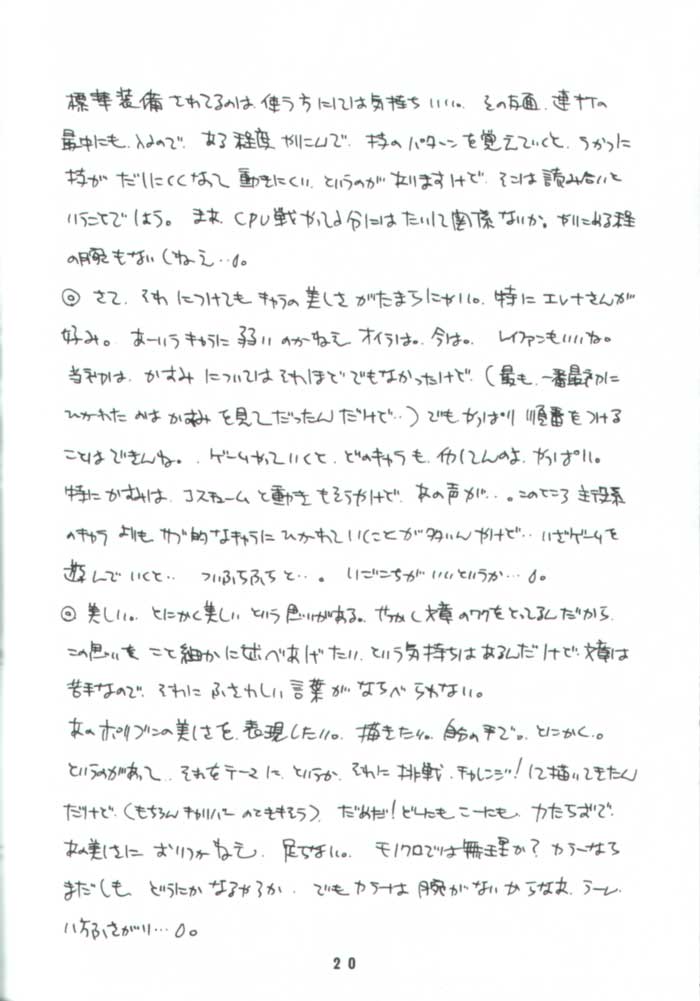 標準装備されてるのは、使う方にしては気持ちいい。その反面、連打の
最中にも、入るので、ある程度やりこんで、技のパターンを覚えていくと、うかつに
技がだしにくくなって動きにくい、というのがありますけど、そこは読み合いと
いうことでしょう。まあ、CPU戦やってる分にはたいして関係ないか。やりこめる程
の腕もないしねえ…。
◎ さて、それにつけてもキャラの美しさがたまらにゃい。特にエレナさんが
好み。あーいうキャラに弱いのかねえオイラは。今は。レイファンもいいね。
当初は、かすみについてはそれほどでもなかったけど、(最も、一番最初に
ひかれたのはかすみを見てだったんだけど‥)でもやっぱり順番をつける
ことはできんね。ゲームやっていくと、どのキャラも、のよ、やっぱり。
特にかすみは、コスチュームと動きもそうやけど、あの声が‥。このところ主役系
のキャラよりも、サブ的なキャラにひかれていくことが多いんやけど‥いざゲームを
遊んでいくと‥ついふらふらと…。いごこちがいいというか…。
◎ 美しい。とにかく美しいという思いがある。せっかく文章のワクをとってるんだから、
この思いをこと細かに述べあげたい、という気持ちはあるんだけど、文章は
苦手なので、それにふさわしい言葉がならべられない。
あのポリゴンの美しさを、表現したい。描きたい。自分の手で。とにかく。
というのがあって、それをテーマに、というか、それに挑戦、チャレンジ!して描いてきたん
だけど、(もちろんキャリバーのときもそう)、だめだ!どーしたもこーしたも、力たらずで、
あの美しさにおいつかねえ、足らない。モノクロでは無理か?カラーなら
まだしも、どうにかなるやろか、でもカラーは腕がないからなあ、うーし、
いちふさがり…。
20